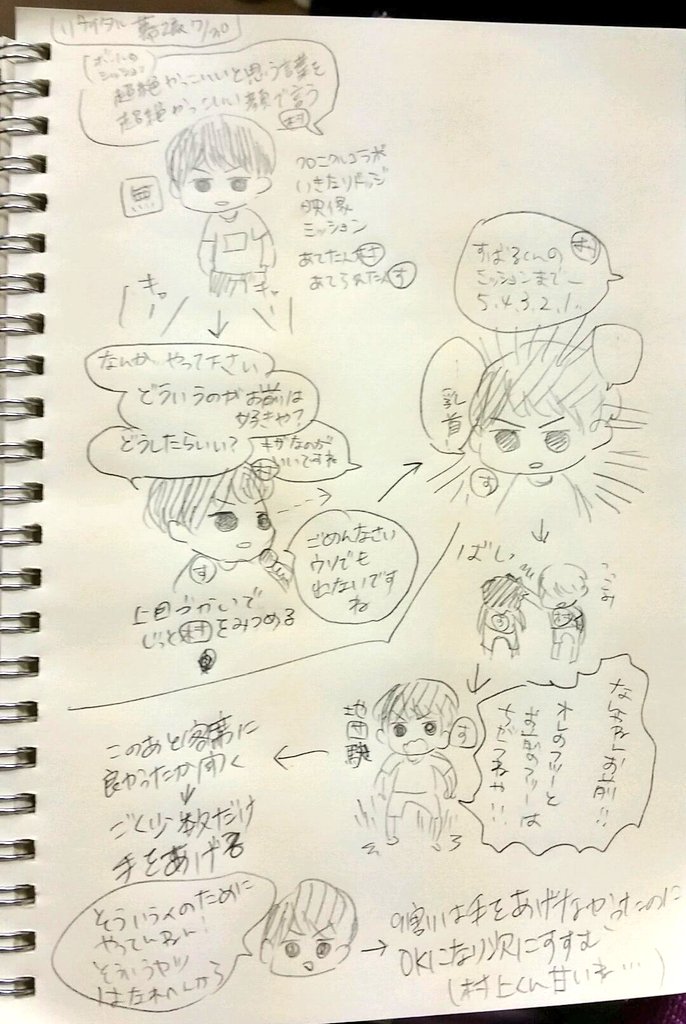 リサイタル 幕張 7/30
ボールの
ミッション
超絶かっこいいと思う言葉を
超絶かっこいい顔で言う
村
無
クロニクルコラボ
いきなりドッジ
映像
ミッション
あてたん村
あてられたんす
キャ
キャー
なんか やって下さい
どういうのがお前は
好きや?
どうしたらいい?
キザなのが
いいですね
村
す
上目づかいで
じっと村をみつめる
ごめんなさい
ウソでも
ねないです
ね
すばるくんの 村
ミッションまでー
5.4.3.2.1..
…
乳首!
す
ばしっ
す
村
なんやねんお前!!
オレのフリーと
お前のフリーは
ちがうねや!!
す
地団駄
このあと客席に
良かったかきく
ごく少数だけ
手をあげる
そういう人のために
やってんねん!
そういうヤツ
9割は手をあげなかったのに
OKになり次にすすむ
(村上くん甘いね…)